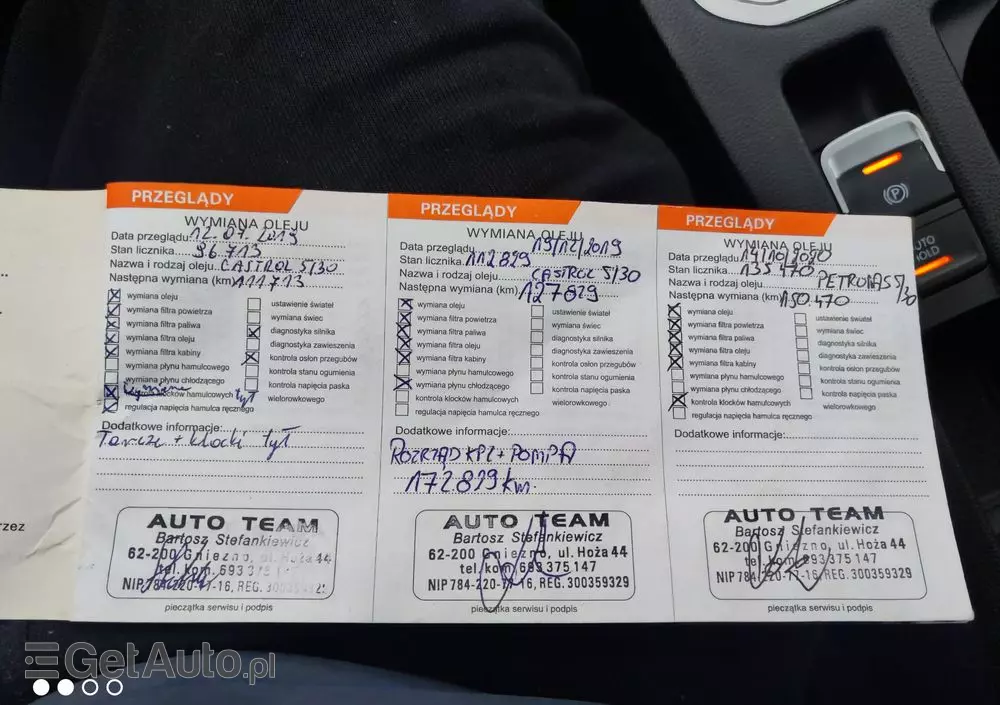 PRZEGLĄDY
WYMIANA OLEJU
Data przeglądu: 12.07.2019
Stan licznika. 96.713
Nazwa i rodzaj oleju. CASTROL 5/30
Następna wymiana (km) 111713
wymiana oleju
wymiana filtra powietrza
wymiana filtra paliwa
wymiana filtra oleju
wymiana filtra kabiny
wymiana płynu hamulcowego
wymiana płynu chłodzącego
klocków hamulcowych tył
regulacja napięcia hamulca ręcznego
ustawienie świateł
wymiana świec
diagnostyka silnika
diagnostyka zawieszenia
kontrola osłon przegubów
kontrola stanu ogumienia
kontrola napięcia paska
wielorowkowego
Dodatkowe informacje:
Tarcze + klocki tył
AUTO TEAM
Bartosz Stefankiewicz
62-200 Gniezno, ul. Hoża 44
tel. kom. 693 375
NIP 784-220-77-16, REG. 300359329
pieczątka serwisu i podpis
PRZEGLĄDY
WYMIANA OLEJU
Data przeglądu 19/12/2019
Stan licznika. 112.829
Nazwa i rodzaj oleju. CASTROL 5/30
Następna wymiana (km) 127829
wymiana oleju
wymiana filtra powietrza
wymiana filtra paliwa
wymiana filtra oleju
wymiana filtra kabiny
wymiana płynu hamulcowego
wymiana płynu chłodzącego
kontrola klocków hamulcowych
regulacja napięcia hamulca ręcznego
ustawienie świateł
wymiana świec
diagnostyka silnika
diagnostyka zawieszenia
kontrola osłon przegubów
kontrola stanu ogumienia
kontrola napięcia paska
wielorowkowego
Dodatkowe informacje:
ROZRZĄD KPL + POMPA
172.829 km.
AUTO TEAM
Bartosz Stefankiewicz
62-200 Gniezno, ul. Hoża 44
tel. kom. 693 375 147
NIP 784-220-77-16, REG. 300359329
pieczątka serwisu i podpis
PRZEGLĄDY
WYMIANA OLEJU
Data przeglądu: 14/10/2020
Stan licznika. 135.470
Nazwa i rodzaj oleju. PETRONAS 5/30
Następna wymiana (km) 150.470
wymiana oleju
wymiana filtra powietrza
wymiana filtra paliwa
wymiana filtra oleju
wymiana filtra kabiny
wymiana płynu hamulcowego
wymiana płynu chłodzącego
kontrola klocków hamulcowych
regulacja napięcia hamulca ręcznego
ustawienie świateł
wymiana świec
diagnostyka silnika
diagnostyka zawieszenia
kontrola osłon przegubów
kontrola stanu ogumienia
kontrola napięcia paska
wielorowkowego
Dodatkowe informacje:
AUTO TEAM
Bartosz Stefankiewicz
62-200 Gniezno, ul. Hoża 44
tel. kom. 693 375 147
NIP 784-220-77-16, REG. 300359329
pieczątka serwisu i podpis
rzez
P
AUTO
HOLD
GetAuto.pl